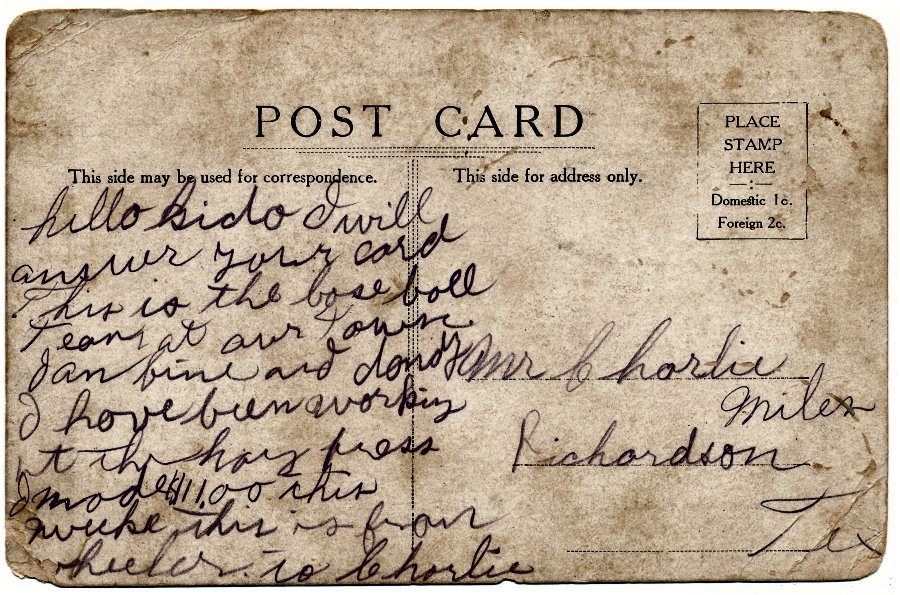 POST CARD
This side may be used for correspondence.
This side for address only.
PLACE
STAMP
HERE
Domestic 1c.
Foreign 2c.
hello kido I will
answer your card
This is the base boll
Team at our Towne
I an bine and dandy
I hove been working
at the hay press
I made $11.00 this
wuke this is from
wheeler to Charlie
Mr Charlie
Miles
Richardson
Tex